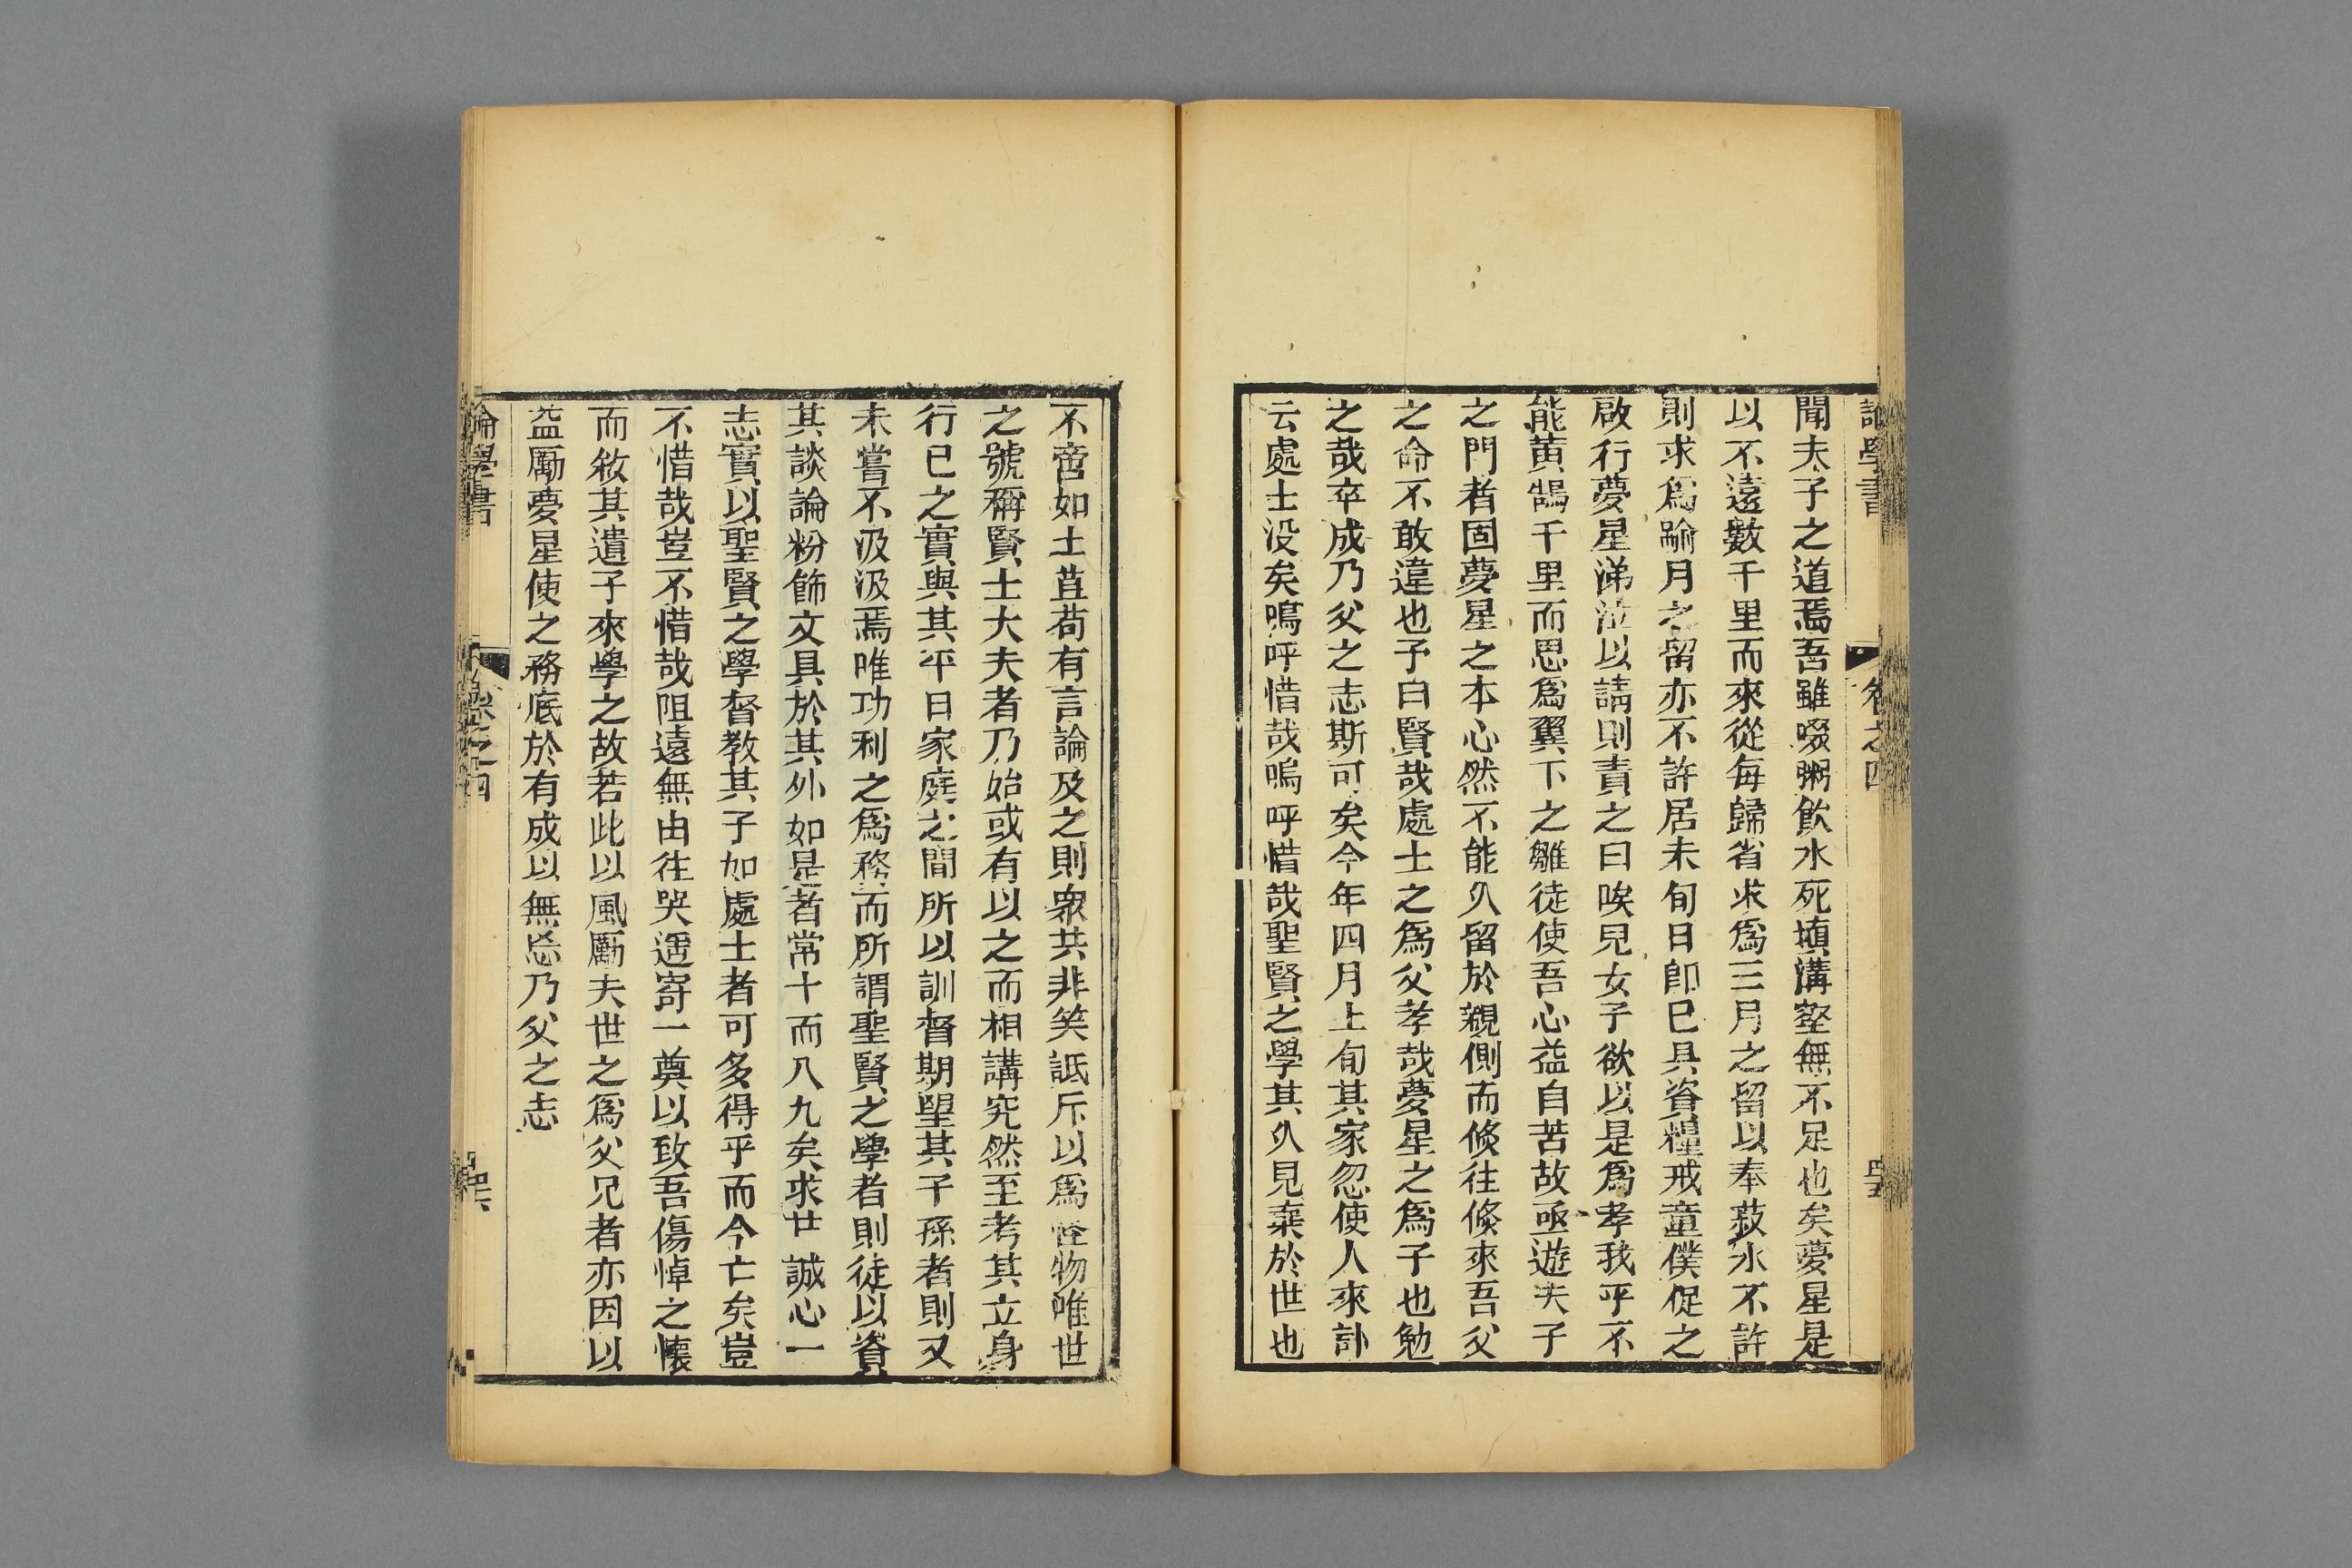 論學書 卷之四 四五
聞夫子之道焉吾雖啜粥飲水死塡溝壑無不足也矣夢星是
以不遠數千里而來從每歸省求爲三月之留以奉菽水不許
則求爲踰月之留亦不許居未旬日卽已具資糧戒童僕促之
啟行夢星涕泣以請則責之曰唉兒女子欲以是爲孝我乎不
能黄鵠千里而思爲翼下之雛徒使吾心益自苦故亟遊夫子
之門者固夢星之本心然不能乆留於親側而倐往倐來吾父
之命不敢違也予曰賢哉處士之爲父孝哉夢星之爲子也勉
之哉卒成乃父之志斯可矣今年四月上旬其家忽使人來訃
云處士没矣嗚呼惜哉嗚呼惜哉聖賢之學其乆見棄於世也
不啻如土苴苟有言論及之則衆共非笑詆斥以爲怪物唯世
之號稱賢士大夫者乃始或有以之而相講究然至考其立身
行已之實與其平日家庭之間所以訓督期望其子孫者則又
未嘗不汲汲焉唯功利之爲務而所謂聖賢之學者則徒以資
其談論粉飾文具於其外如是者常十而八九矣求廿誠心一
志實以聖賢之學督教其子如處士者可多得乎而今亡矣豈
不惜哉豈不惜哉阻遠無由往哭遥寄一奠以致吾傷悼之懷
而敘其遺子來學之故若此以風勵夫世之爲父兄者亦因以
益勵夢星使之務底於有成以無忘乃父之志
論學書 卷之四 四六